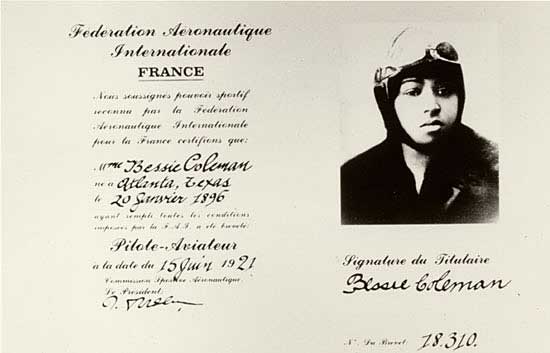 Federation Aeronautique
Internationale
FRANCE
Nous soussignes pouvoir sportif
reconnu par la Federation
Aeronautique Internationale
pour la France certifions que:
Mme Bessie Coleman
né à Atlanta, Texas
le 20 Janvier 1896
ayant rempli toutes les conditions
imposées par la F.A.I. a été breveté:
Pilote-Aviateur
à la date du 15 Juin 1921
Commission Sportive Aéronautique.
Le Président:
Signature du Titulaire
Bessie Coleman
No. Du Brevet: 18.310.